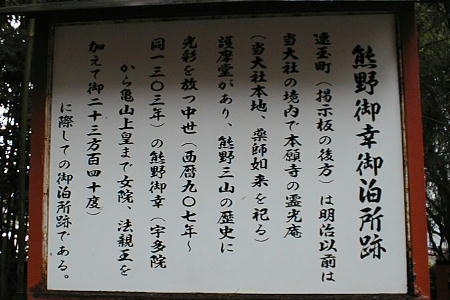 熊野御幸御泊所跡
速玉町(掲示板の後方)は明治以前は
当大社の境内で本願寺の霊光庵
(当大社本地、薬師如来を祀る)
護摩堂があり、熊野三山の歴史に
光彩を放つ中世(西暦九〇七年~
同一三〇三年)の熊野御幸(宇多院
から亀山上皇まで女院、法親王を
加えて御二十三方百四十度)
に際しての御泊所跡である。